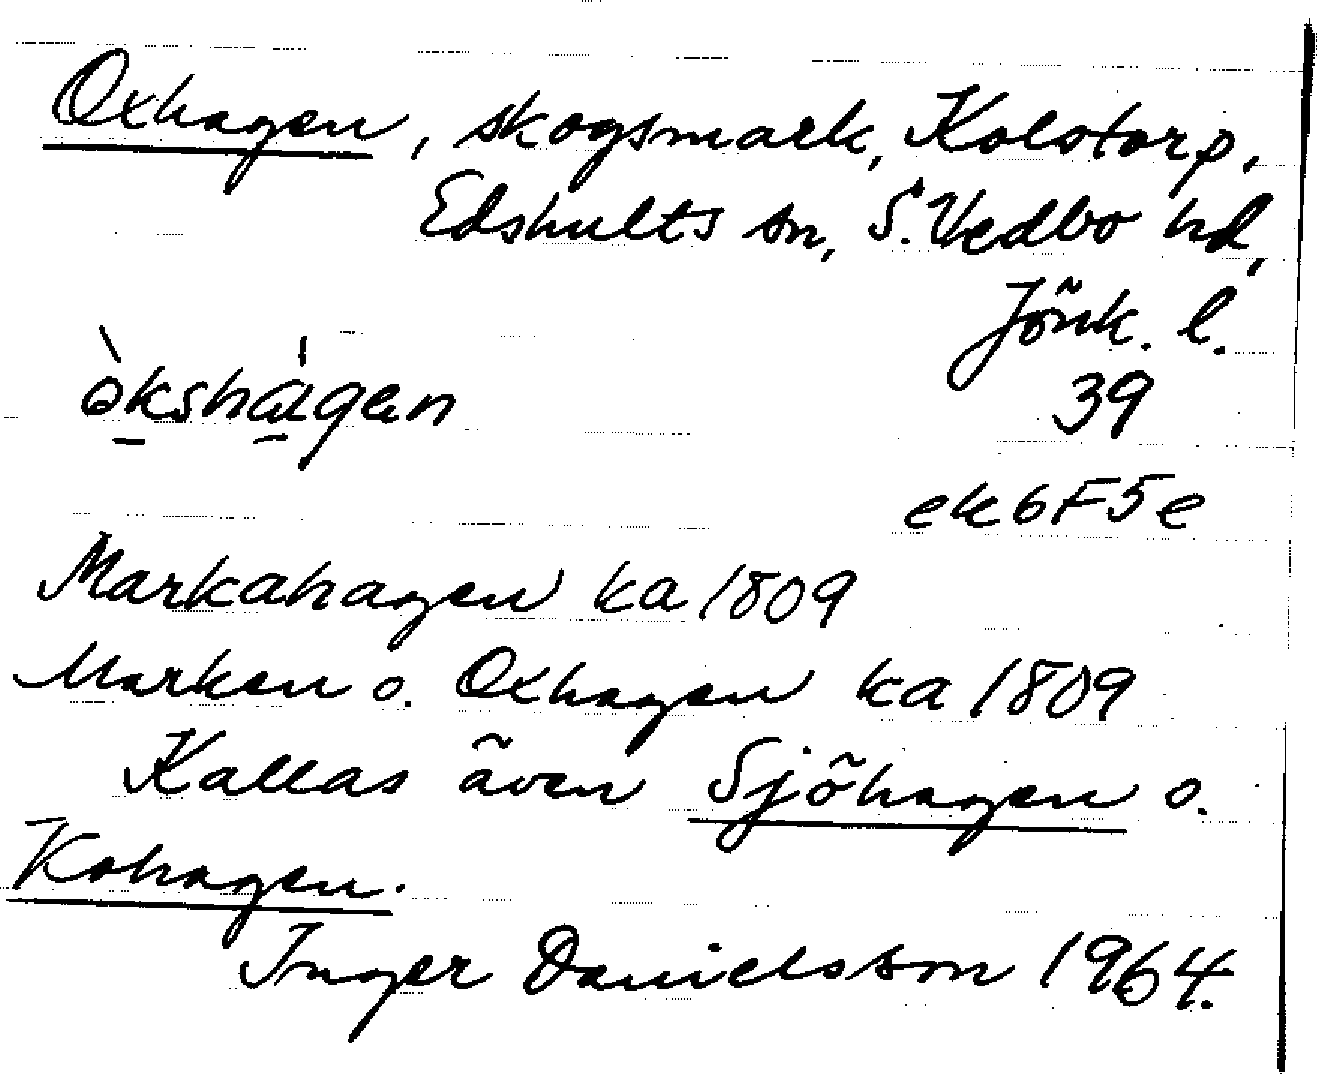 Oxhagen, skogsmark, Kolstorp,
Edshults sn, S. Vedbo hd,
Jönk. l.
òkshágen
39
ek 6F5e
Markahagen ka 1809
Marken o. Oxhagen ka 1809
Kallas även Sjöhagen o.
Kohagen.
Inger Danielsson 1964.